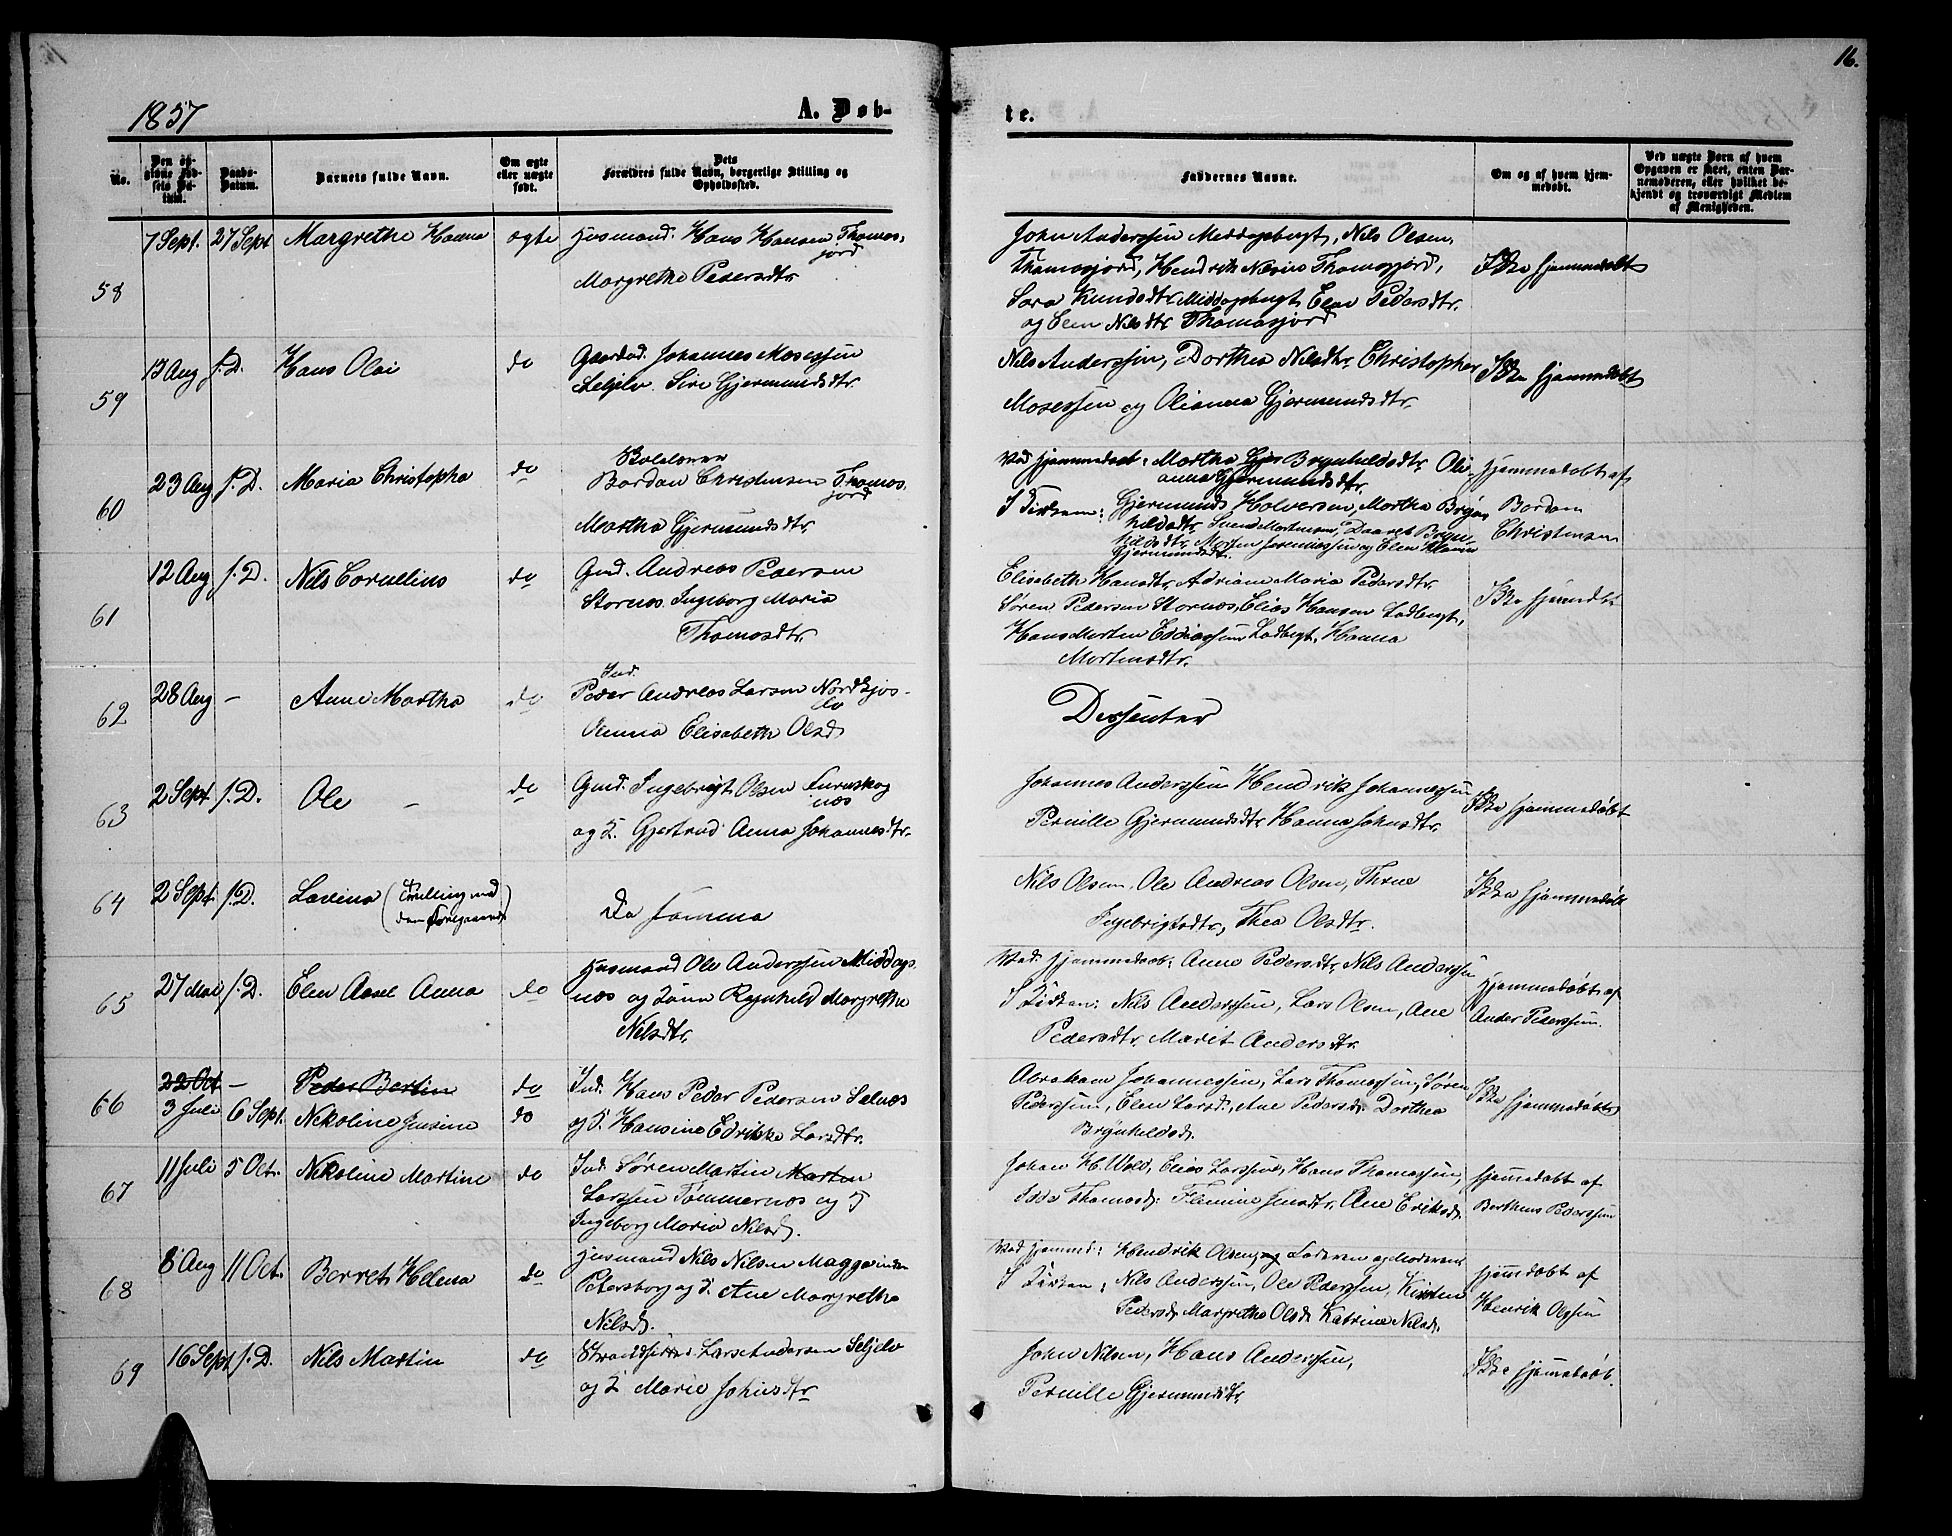 16.
1857
A. Døb-
te.
No.
Den op-
givne Fød-
sels Da-
tum.
Daabs-
Datum.
Barnets fulde Navn.
Om ægte
eller uægte
født.
Dets
Forældres fulde Navn, borgerlige Stilling og
Opholdssted.
Faddernes Navne.
Om og af hvem hjem-
medøbt.
Ved uægte Børn af hvem
Opgaven er skeet, enten Bar-
nemoderen, eller hvilket be-
kjendt og troværdigt Medlem
af Menigheden.
58
7 Sept.
27 Sept
Margrethe Hanna
ægte
Husmand. Hans Hansen Thomas-
jord
Margrethe Pedersdtr
John Anderssen Middagsbergt, Nils Olsen,
Thomasjord, Hendrik Thomasjord,
Sara Knudsdtr Middagsbergt Elen Pedersdtr.
og Elen Nilsdtr Thomasjord
Ikke hjemmedøbt
59
13 Aug
s. D.
Hans Olai
do
Gaardmd. Johannes Mosessen
Seljelv. Siri Gjermundsdtr.
Nils Anderssen, Dorthea Nilsdtr. Christopher
Mosessen og Olianna Gjermundsdtr.
Ikke hjemmedøbt
60
23 Aug
s. D.
Maria Christopha
do
Bordan Christensen Thomas-
jord
Martha Gjermundsdtr.
Ved hjemmedaab: Martha Brynhildsdtr Oli-
anna Gjermundsdtr.
I Kirken: Gjermund Halversen, Martha Bryn-
hildsdtr, Svend Mortensen, Daaret Bryn-
hildsdtr, Morten Jeremiassen og Elen
Gjermundsdtr.
Hjemmedøbt af
Bordan
Christensen
61
12 Aug
s. D.
Nils Cornelius
do
Gmd. Andreas Pedersen
Stornes. Ingeborg Maria
Thomasdtr
Elisabeth Hansdtr, Adriane Maria Pedersdtr.
Søren Pedersen Stornes, Elias Hansen Ladbergt,
Hans Morten Eliassen Ladbergt, Hanna
Mortensdtr.
Ikke hjemdbt
62
28 Aug
-
Anne Martha
do
Ind.
Peder Andreas Larsen Nordkjos-
elv
Anna Elisabeth Olsd
Dissenter
63
2 Sept
s. D.
Ole -
do
Gmd. Ingebrigt Olsen Furuskog
næs
og K. Gjertrud Anna Johannesdtr.
Johannes Anderssen Hendrik Johannessen
Pernille Gjermundsdtr, Hanna Johnsdtr.
Ikke hjemmedøbt
64
2 Sept.
s. D.
Lavina (Tvilling med
den Foregaaende)
De samme
Nils Olsen, Ole Andreas Olsen, Thrine
Ingebrigtsdtr, Thea Olsdtr.
Ikke hjemmedøbt
65
27 Mai
s. D.
Elen Aasel Anna
do
Husmand Ole Anderssen Middags-
næs og Kone Ragnhild Margrethe
Nilsdtr.
Ved hjemmedaab: Anne Pedersdtr, Nils Anderssen
I Kirken: Nils Anderssen, Lars Olsen, Ane
Pedersdtr Marit Andersdtr.
Hjemmedøbt af
Ander Pederssen.
66
22 Oct
-
Peder Bertin
do
3 Juli
6 Sept.
Nekoline Jensine
do
Ind. Hans Peder Pedersen Selnæs
og K. Hansine Edrikke Larsdtr.
Abraham Johannessen, Lars Thomassen, Søren
Pederssen, Elen Larsd., Ane Pedersd. Dorthea
Brynhildsd.
Ikke hjemmedøbt
67
11 Juli
5 Oct.
Nikoline Martine
do
Ind. Søren Martin Morten
Larssen Tømmernæs og K
Ingeborg Maria Nilsd.
Johan H. Wold, Elias Larssen, Hans Thomassen,
Thomasd., Ane Eriksd.
Hjemmedøbt af
Berthus Pederssen
68
8 Aug
11 Oct.
Berret Helena
do
Husmand Nils Nilsen Maggainden
Petersborg og K. Ane Margrethe
Nilsd.
Ved hjemmed: Hendrik Olsen, og Faderen og Moderen
I Kirken: Nils Anderssen, Ole Pederssen, Kirsten
Pedersd. Margrethe Olsd. Katrine Nilsd.
Hjemdøbt af
Henrik Olssen
69
16 Sept
s. D.
Nils Martin
do
Strandsidder Lars Andersen Seljelv
og K Marie Johnsdtr
John Nilsen, Hans Anderssen,
Pernille Gjermundsdtr,
Ikke hjemmedøb.